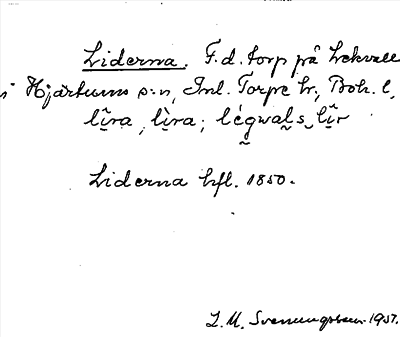 Liderna. F. d. torp på Lekvall
i Hjärtums s:n, Inl. Torpe hr., Boh. l.
lĩra, lìra; légwal̰s lĩr
Liderna hfl. 1850.
L. M. Svenungsson 1937.